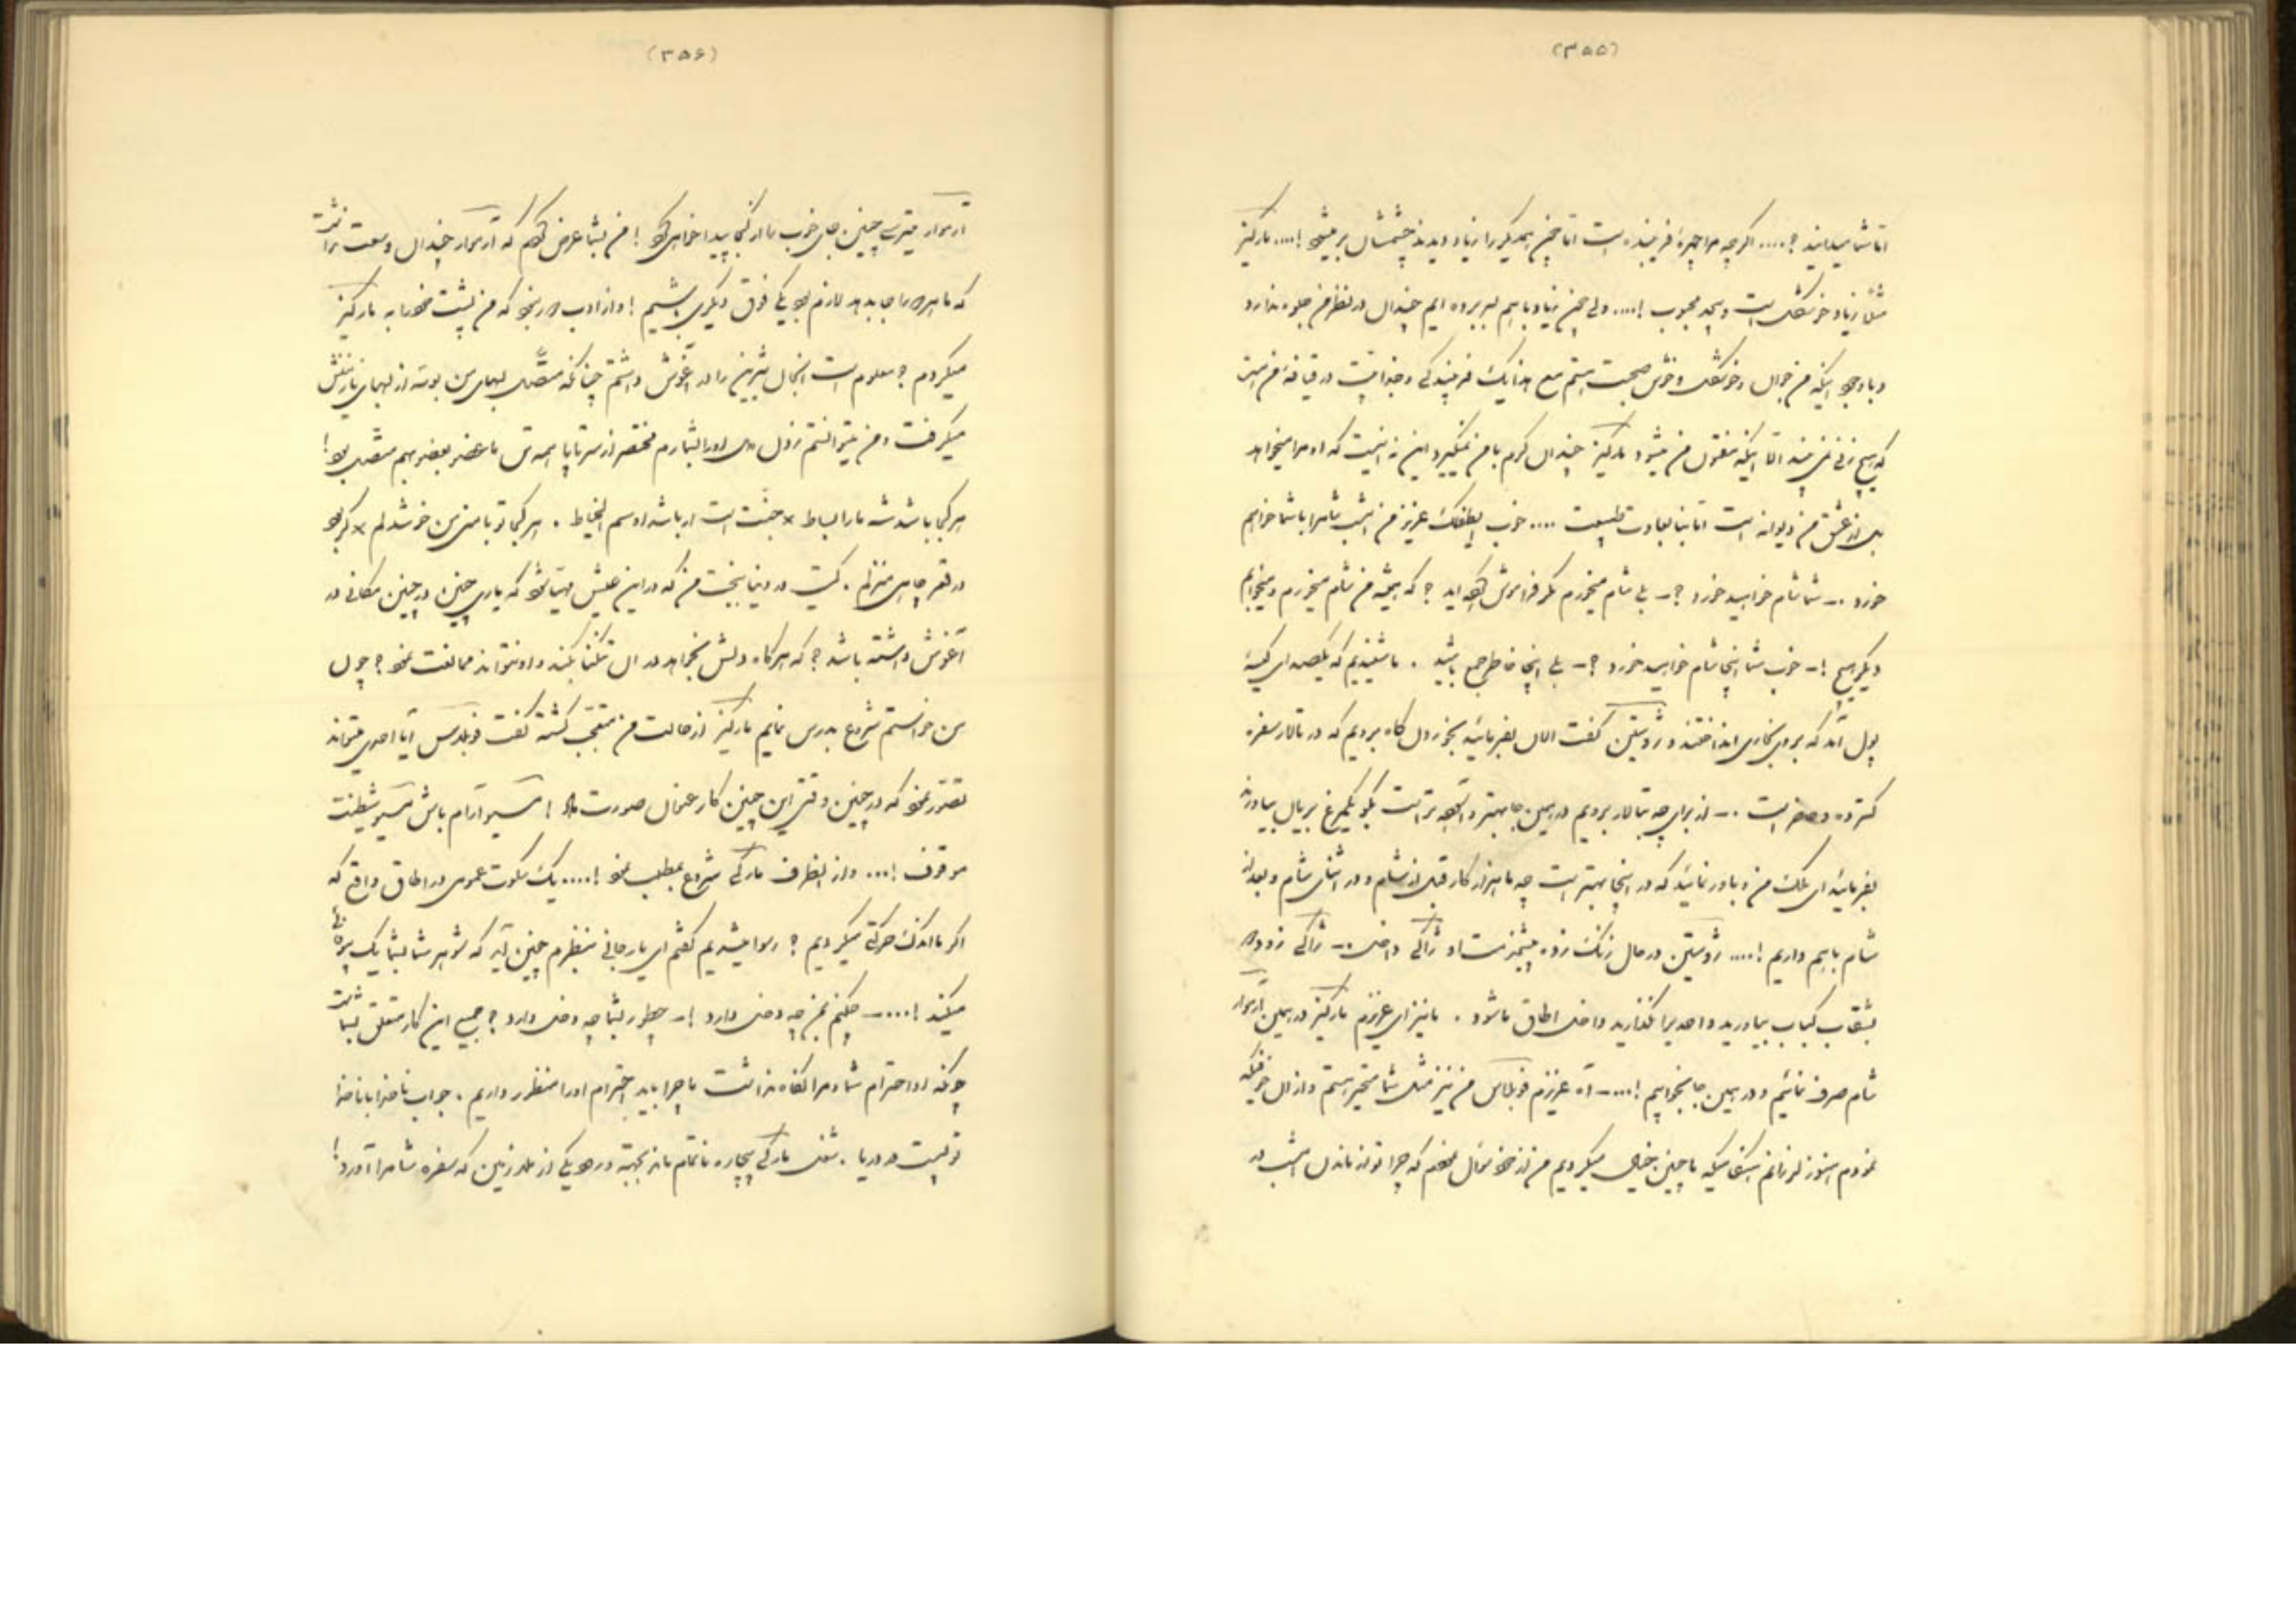 (۳۵۵)
اما شما میدانید ؟.... اگرچه مرا چهرهٔ فریبنده است اما چون همدیگر را زیاد دیدند چشمشان پر میشود !.... مارکیز
مثلاً زیاد خوشگل است و بیحد محبوب !.... ولی چون زیاد باهم بسر برده ایم چندان در نظر من جلوه ندارد
و با وجود اینکه من جوان و خوشگل و خوش صحبت هستم مع هذا یک فریبندگی و جذابیت در قیافه من است
که هیچ زنی نمی بیند الا اینکه مفتون من میشود مارکیز چندان گرم با من نمیگیرد این نه اینست که او مرا نمیخواهد
بلی از عشق من دیوانه است اما بنا بعادت طبیعت .... خوب لطفک عزیز من امشب شام را با شما خواهم
خورد .ـ شما شام خواهید خورد ؟ـ بلی شام میخورم مگر فراموش کرده اید ؟ که همیشه من شام میخورم و میخوابم
دیگر هیچ !ـ خوب شما اینجا شام خواهید خورد ؟ـ بلی اینجا خاطر جمع باشید . ما شنیدیم که یکصدای کیسهٔ
پول آمد که بروی بخاری انداختند و ژوستین گفت الان بفرمائید بخوردن گاه برویم که در تالار سفره
گسترده و حاضر است .ـ از برای چه بتالار برویم در همین جا بهتر و آسوده تر است بگو یکمرغ بریان بیاورند
بفرمائید ای ملک من و باور نمائید که در اینجا بهتر است چه ما هزار کار قبل از شام و در اثنای شام و بعد از
شام باهم داریم !.... ژوستین در حال زنگ زده پیشخدمت او ژاکی داخل .ـ ژاکی زود
بشقاب کباب بیاورید و احدیرا نگذارید داخل اطاق ما شود . ما نیز ای عزیزم مارکیز در همین آرموار
شام صرف نمائیم و در همین جا بخوابیم !....ـ آه عزیزم فوبلاس من نیز مثل شما متحیر هستم و از آن خوفیکه
نمودم هنوز لرزانم هنگامیکه ما چنین خیال میکردیم من از خود سؤال نمودم که چرا تو از ماندن امشب در
(۳۵۶)
آرموار میترسی چنین جای خوب را از کجا پیدا خواهی کرد ! من بشما عرض کردم که آرموار چندان وسعت نداشت
که ما هر دو را جا بدهد لازم بود یکی فوق دیگری باشیم ! و از ادب دور بود که من پشت خود را به مارکیز
میکردم ؟ معلوم است آنجان شیرین را در آغوش داشتم چنانکه متصل لبهای من بوسه از لبهای نازنینش
میگرفت و من میتوانستم نزول دل او را بشمارم مختصر از سر تا پا همه تن ما عضو بعضو بهم متصل بود !
هر کجا باشد شه ما را بساط × جنت است ار باشد او سم الخیاط . هر کجا تو با منی من خوشدلم × گر بود
در قعر چاهی منزلم . کیست در دنیا ببخت من که در این عیش مهیا شود که یاری چنین در چنین مکانی در
آغوش داشته باشد ؟ که هر گاه دلش بخواهد در آن تنگنا بکند و او نتواند ممانعت نمود ؟ چون
من خواستم شروع بدرس نمایم مارکیز از حالت من متعجب گشته گفت فوبلاس آیا آدمی میتواند
تصور نمود که در چنین وقتی این چنین کار عنوان صورت داد ! مسیو آرام باش مسیو شیطنت
موقوف !... و از آنطرف مارکی شروع بمطلب نمود !.... یک سکوت عمومی در اطاق واقع که
اگر ما اندک حرکتی میکردیم ؟ رسوا میشدیم گفتم ای یار جانی بنظرم چنین آید که شوهر شما بشما یک
میکند !....ـ چکنم بمن چه دخل دارد !ـ چطور بشما چه دخل دارد ؟ جمیع این کار متعلق بشماست
چونکه او احترام شما و مرا نگاه نداشت ما چرا باید احترام او را منظور داریم . جواب ناخدا با ناخدا
توپست در دریا . شغل مارکی بیچاره ناتمام ماند بجهة ورود یکی از ملازمین که سفره شام را آورد !